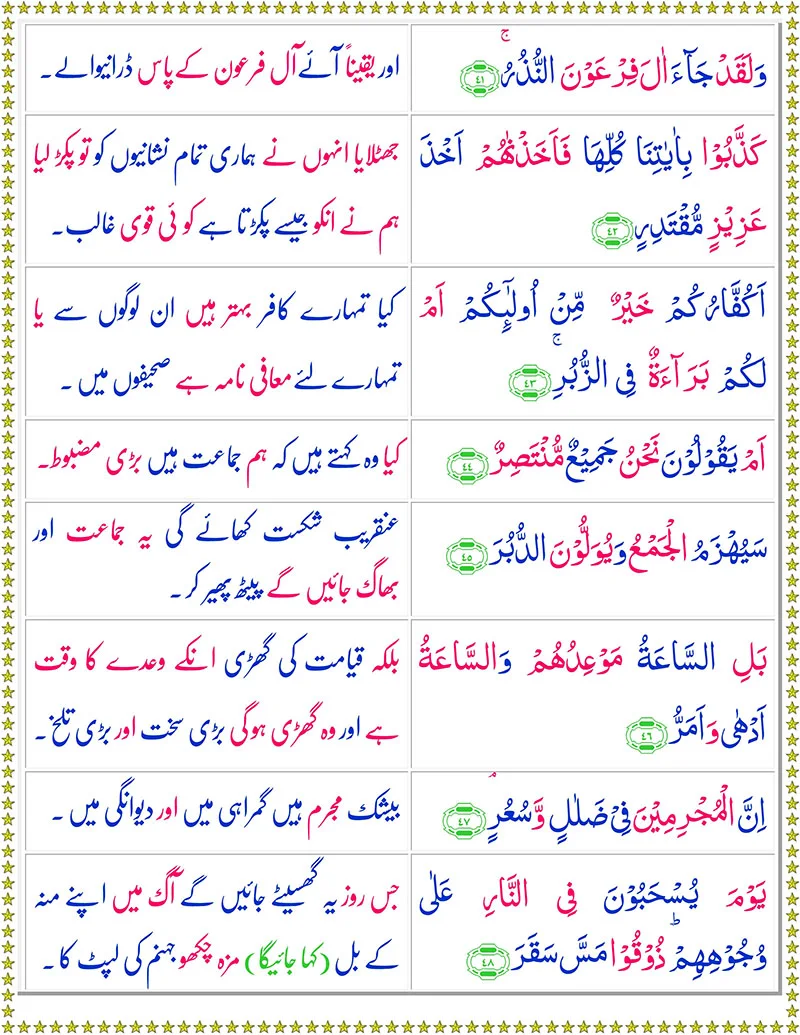 وَلَقَدْ جَآءَ اٰلَ فِرْعَوْنَ النُّذُرُۚ ﴿٤١﴾
اور یقیناً آئے آل فرعون کے پاس ڈرانیوالے۔
كَذَّبُوْا بِاٰيٰتِنَا كُلِّهَا فَاَخَذْنٰهُمْ اَخْذَ
عَزِيْزٍ مُّقْتَدِرٍ ﴿٤٢﴾
جھٹلایا انہوں نے ہماری تمام نشانیوں کو تو پکڑ لیا
ہم نے انکو جیسے پکڑتا ہے کوئی قوی غالب۔
اَكُفَّارُكُمْ خَيْرٌ مِّنْ اُولٰٓئِكُمْ اَمْ
لَكُمْ بَرَآءَةٌ فِى الزُّبُرِۚ ﴿٤٣﴾
کیا تمہارے کافر بہتر ہیں ان لوگوں سے یا
تمہارے لئے معافی نامہ ہے صحیفوں میں۔
اَمْ يَقُوْلُوْنَ نَحْنُ جَمِيْعٌ مُّنْتَصِرٌ ﴿٤٤﴾
کیا وہ کہتے ہیں کہ ہم جماعت ہیں بڑی مضبوط۔
سَيُهْزَمُ الْجَمْعُ وَيُوَلُّوْنَ الدُّبُرَ ﴿٤٥﴾
عنقریب شکست کھائے گی یہ جماعت اور
بھاگ جائیں گے پیٹھ پھیر کر۔
بَلِ السَّاعَةُ مَوْعِدُهُمْ وَالسَّاعَةُ
اَدْهٰى وَاَمَرُّ ﴿٤٦﴾
بلکہ قیامت کی گھڑی انکے وعدے کا وقت
ہے اور وہ گھڑی ہوگی بڑی سخت اور بڑی تلخ۔
اِنَّ الْمُجْرِمِيْنَ فِىْ ضَلٰلٍ وَّسُعُرٍۘ ﴿٤٧﴾
بیشک مجرم ہیں گمراہی میں اور دیوانگی میں۔
يَوْمَ يُسْحَبُوْنَ فِى النَّارِ عَلٰى
وُجُوْهِهِمْؕ ذُوْقُوْا مَسَّ سَقَرَ ﴿٤٨﴾
جس روز یہ گھسیٹے جائیں گے آگ میں اپنے منہ
کے بل (کہا جائیگا) مزہ چکھو جہنم کی لپٹ کا۔